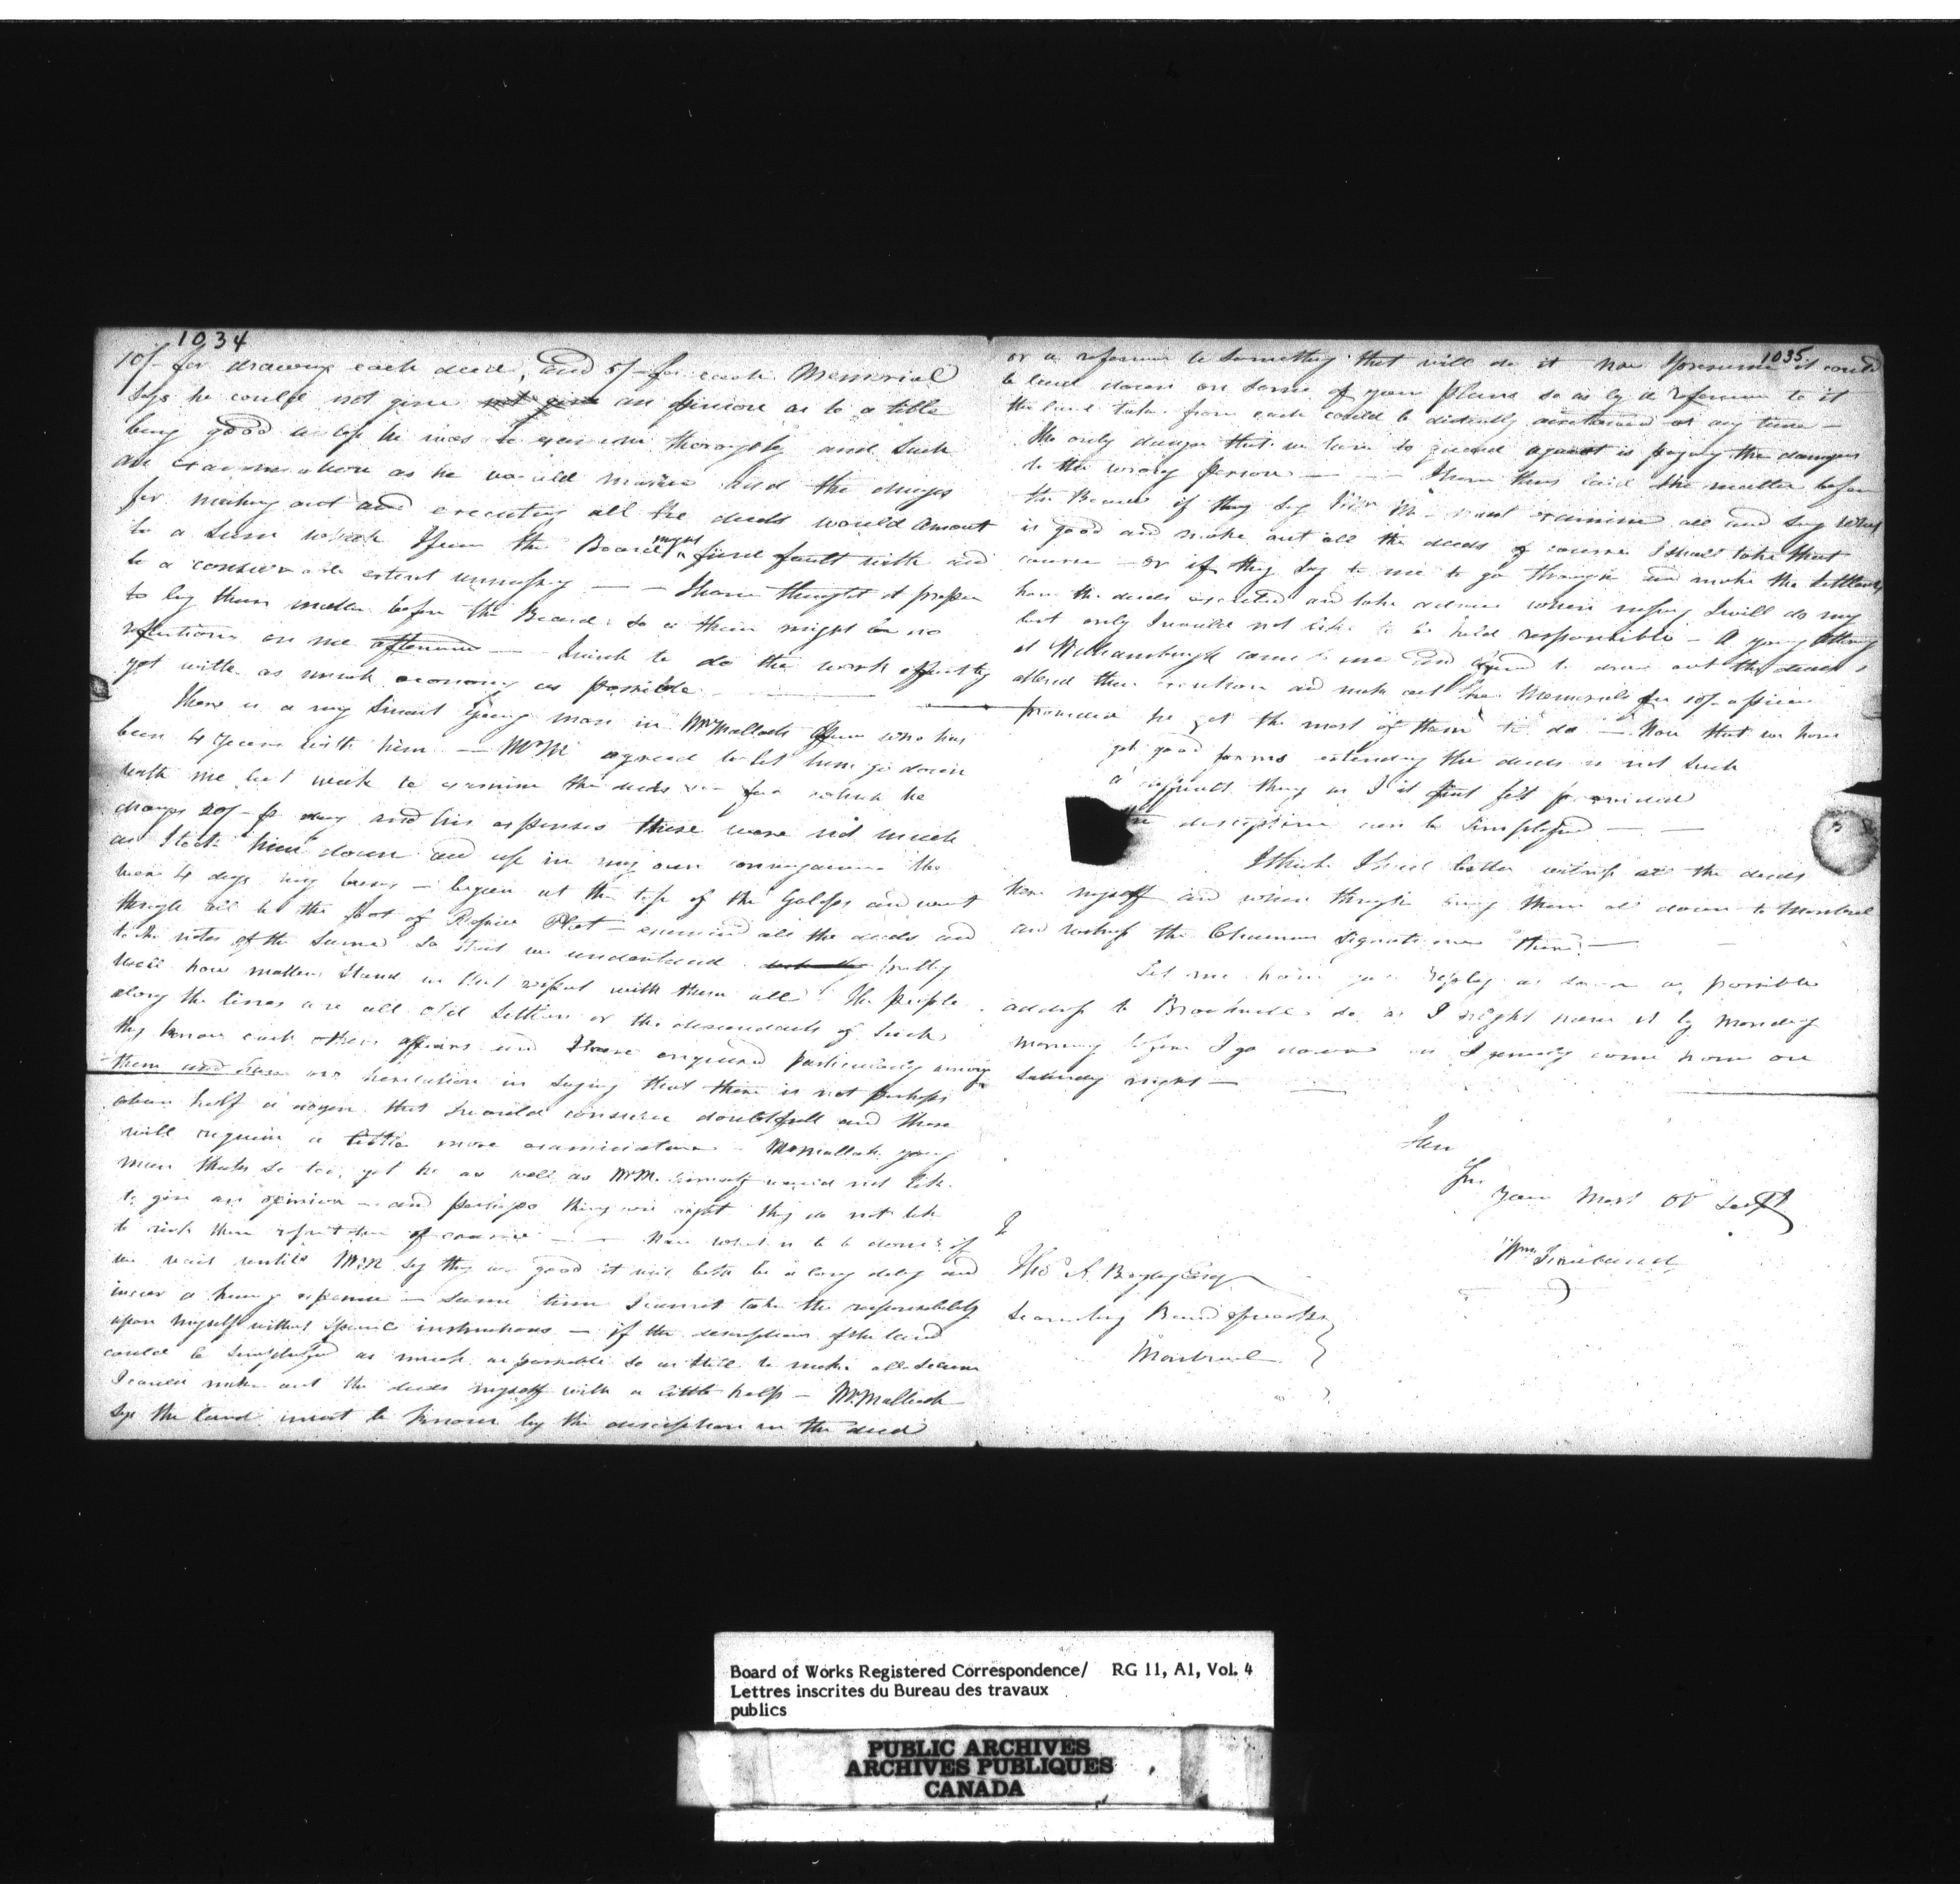 1034
10/- for drawing each deed, and 5/- for each Memorial
says he could not give not give an opinion as to a title
being good unless he was to examine thoroughly and such
an examination as he would make and the charges
for making out and executing all the deeds would amount
to a sum which I fear the Board might find fault with and
to a considerable extent unnecessary — I have thought it proper
to lay them matter before the Board so as there might be no
reflections on me afterward — I wish to do the work
yet with as much economy as possible
There is a very Smart young man in Mr Mallochs office who has
been 4 years with him — Mr M agreed to let him go down
with me last week to examine the deeds for which he
charges 20/- p day and his expenses these were not much
as I took him down and up in my own conveyance
were 4 days very busy — began at the top of the Galops and went
through all to the foot of Rapide Plat — examined all the deeds and
took notes of the same so that we understand pretty
well how matters stand in that respect with them all. The people
along the lines are all old Settlers or the descendants of such
they know each others affairs and I have enquired particularly among
them and have no hesitation in saying that there is not perhaps
above half a dozen that I would consider doubtfull and these
will require a little more examination — Mr Mallochs young
man thinks so too, yet he as well as Mr M. himself would not like
to give an opinion — and perhaps they are right they do not like
to risk their reputation of course — Now what is to be done if
we wait untill Mr M say they are good it will both be a long delay and
incur a heavy expense — same time I cannot take the responsibility
upon myself without special instructions — if the description of the land
could be simplefied as much as possible so as still to make all secure
I could make out the deeds myself with a little help — Mr Malloch
says the land must be known by the description in the deed
1035
or a reference to something that will do it now I presume it could
be laid down on some of your plans so as by a reference to it
the land taken from each could be distinctly ascertained at any time —
The only danger that we have to guard against is paying the damages
to the wrong person — I have thus laid the matter before
the Board if they say Mr M — must examine all and say what
is good and make out all the deeds of course I shall take that
course — or if they say to me to go through and make the settlements
have the deeds executed and take advice when necessary I will do my
best only I would not like to be held responsible — A young Attorney
at Williamsburgh came to me and agreed to draw out the deeds
attend their execution and make out the Memorials for 10/- apiece
provided he got the most of them to do — Now that we have
got good forms extending the deeds is not such
a difficult thing as I at first felt provided
the description can be simplefied —
I think I had better witness all the deeds
here myself and when through bring them all down to Montreal
and witness the Chairmans signature there —
Let me have your reply as soon as possible
address to Brockville so as I might have it by Monday
morning before I go down as I generally come home on
Saturday night —
I am
Sir
Your Most Obt Servt
Thos A. Begly Esqr
Secretary Board of works
Montreal
Board of Works Registered Correspondence/ RG 11, A1, Vol. 4
Lettres inscrites du Bureau des travaux
publics
PUBLIC ARCHIVES
ARCHIVES PUBLIQUES
CANADA